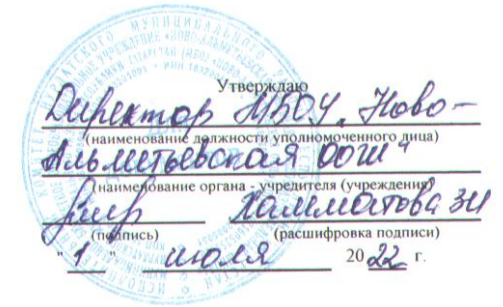 Утверждаю
Директор МБОУ „Ново-
(наименование должности уполномоченного лица)
Альметьевская ООШ"
(наименование органа - учредителя (учреждения)
Хамматова ЗИ
(подпись) (расшифровка подписи)
" 1 " июля 20 22 г.